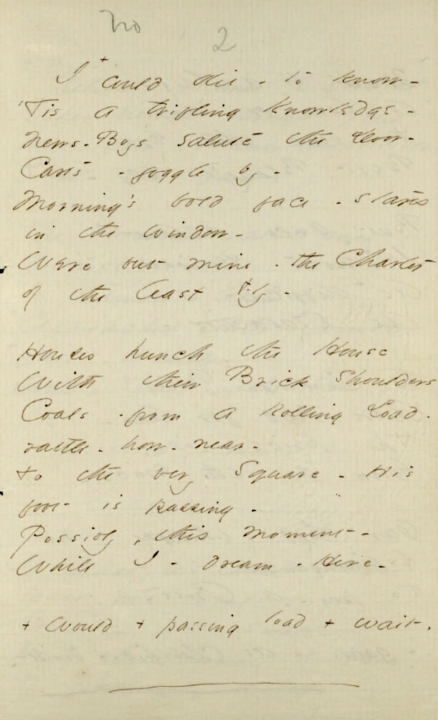 No
2
I + could die - to know -
'Tis a trifling knowledge -
News-Boys salute the Door -
Carts - joggle by -
Morning's bold face - stares
in the window -
Were but mine - the Charter
of the least Fly -
Houses hunch the House
With their Brick Shoulders
Coals - from a Rolling Load -
rattle - how - near -
to the very Square - His
foot is passing -
Possibly, this moment -
While I - dream - Here -
+ would + passing load + wait -